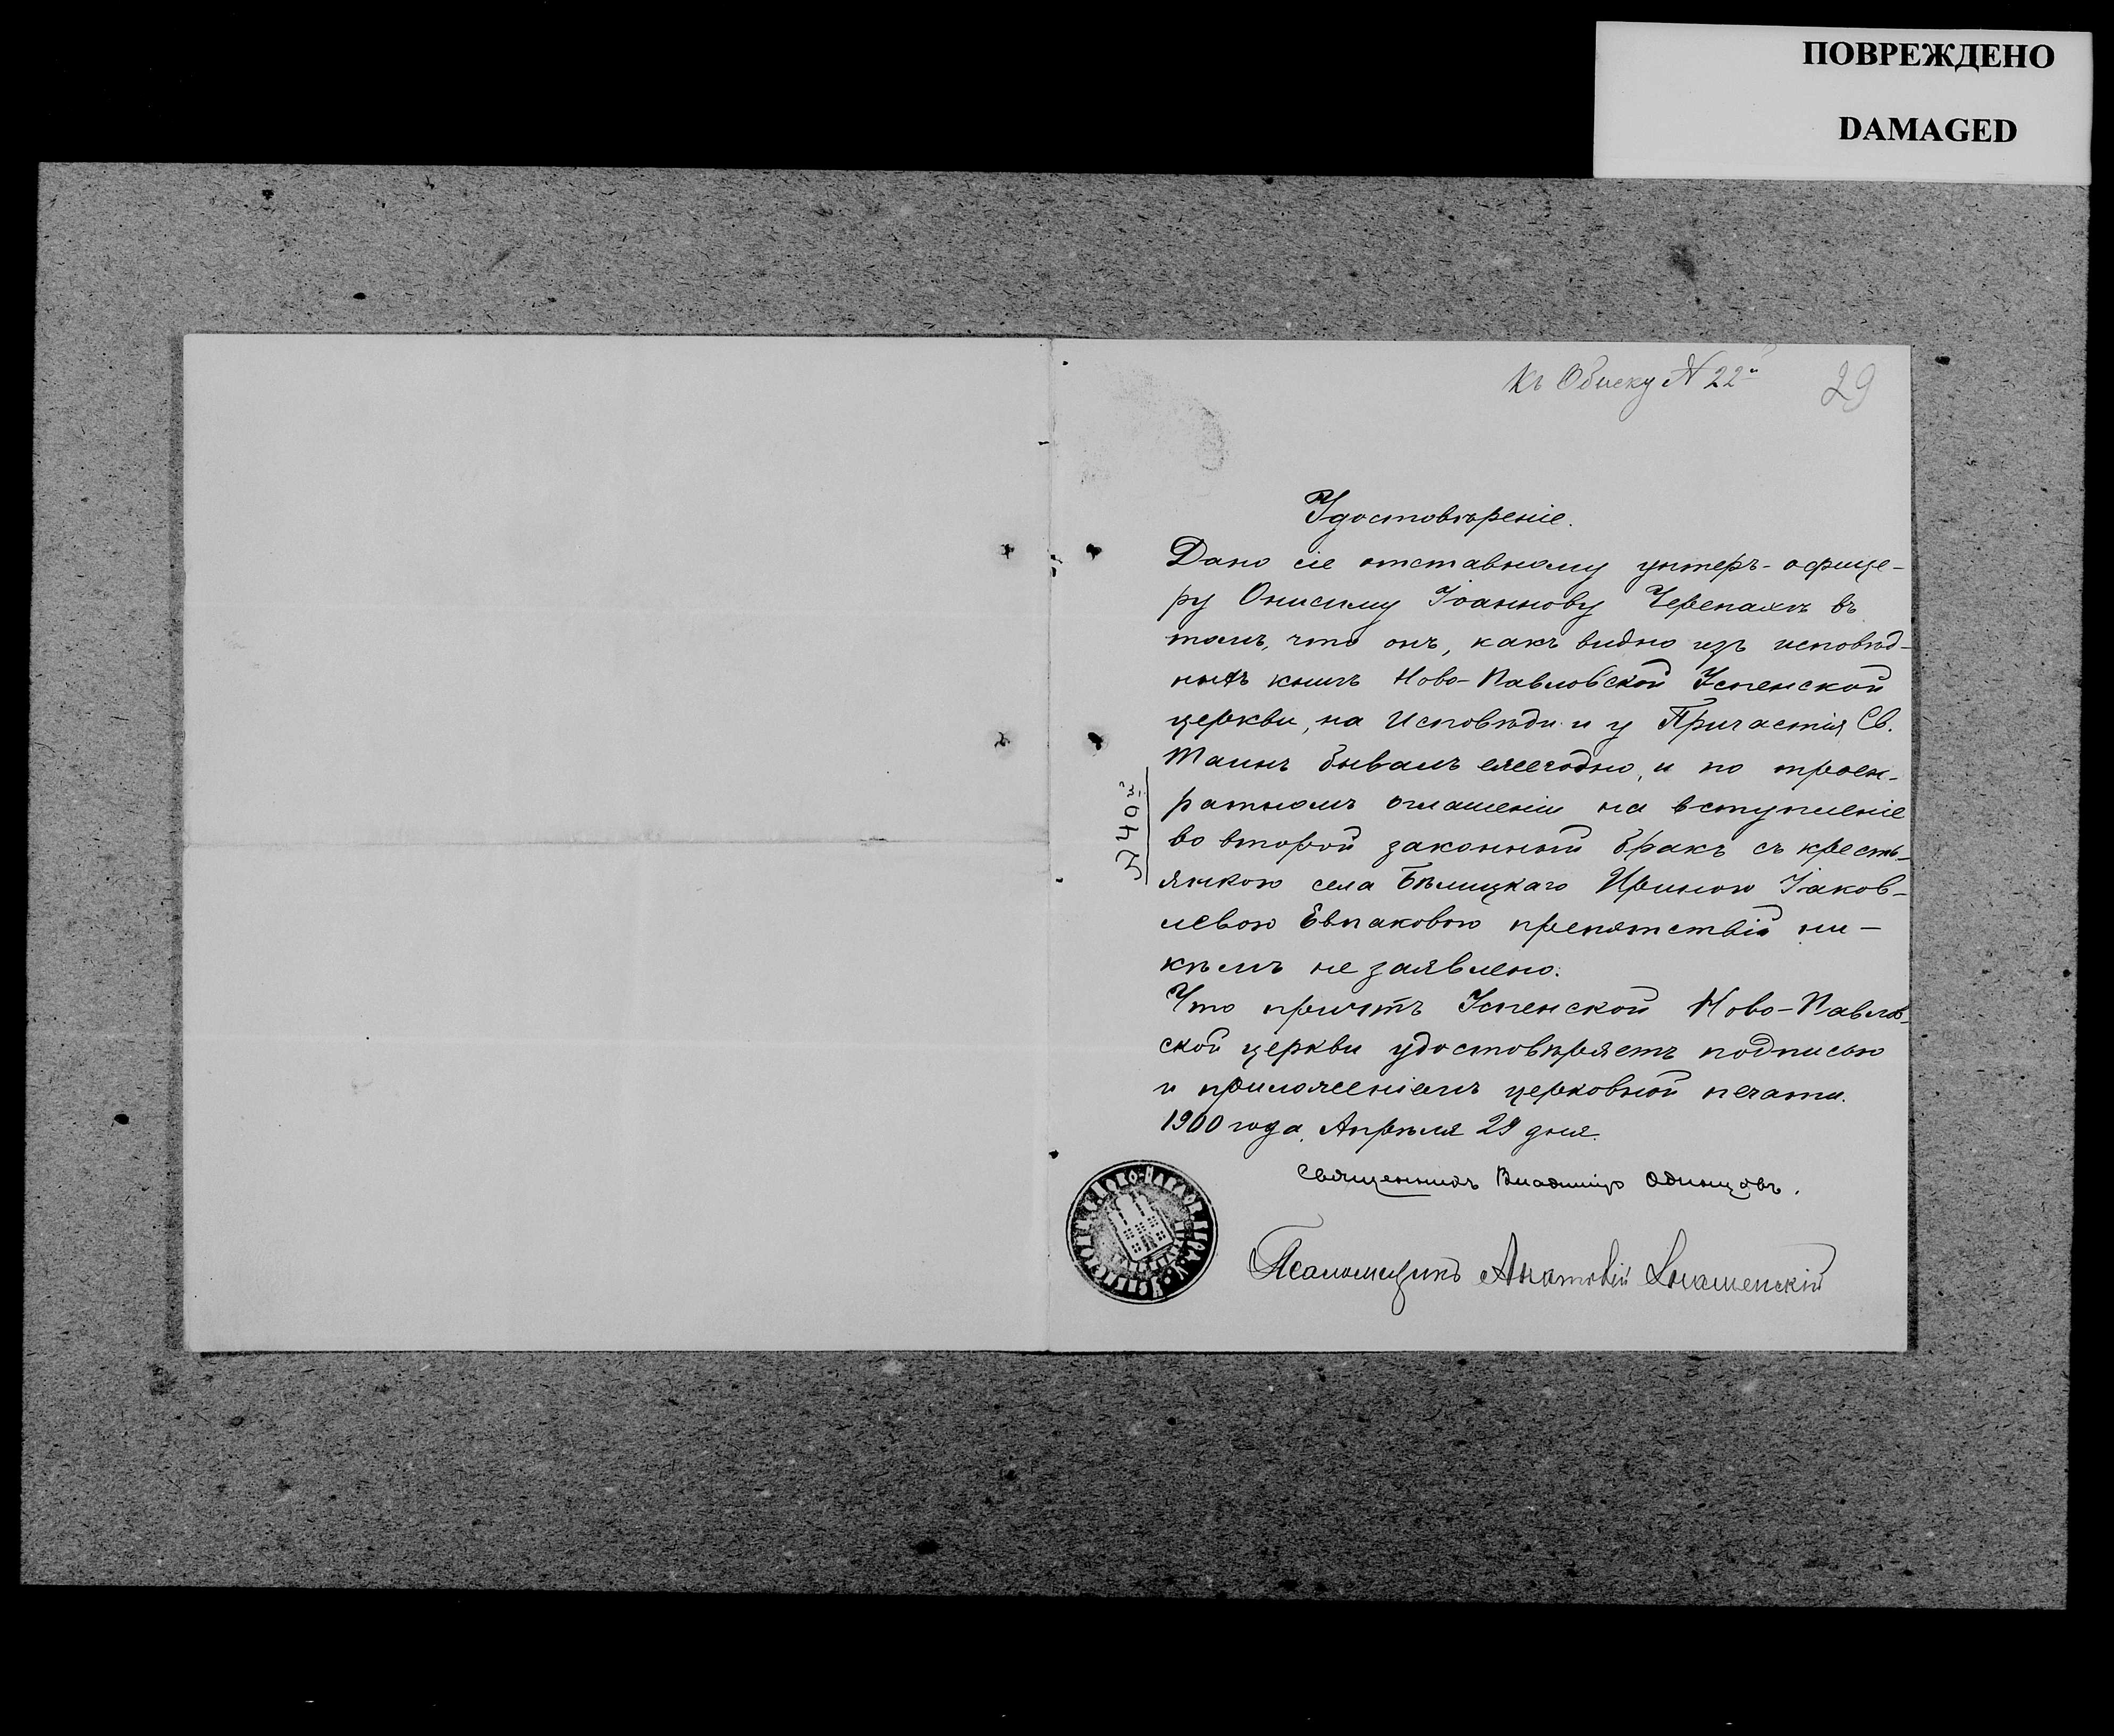 ПОВРЕЖДЕНО
DAMAGED
Къ Обыску № 22й
29
Удостовѣреніе.
Дано сіе отставному унтеръ-офице-
ру Онисиму Іоаннову Черепахѣ въ
томъ, что онъ, какъ видно изъ исповѣд-
ныхъ книгъ Ново-Павловской Успенской
церкви, на Исповѣди и у Причастія Св.
Таинъ бывалъ ежегодно, и по троек-
ратномъ оглашеніи на вступленіе
во второй законный бракъ съ кресть-
янкою села Бѣлицкаго Ириною Іаков-
левою Евпаковою препятствій ни-
кѣмъ не заявлено.
Что причтъ Успенской Ново-Павлов-
ской церкви удостовѣряетъ подписью
и приложеніемъ церковной печати.
1900 года, Апрѣля 29 дня.
№ 40й
Священникъ Владиміръ Одинцовъ.
Псаломщикъ Анатолій